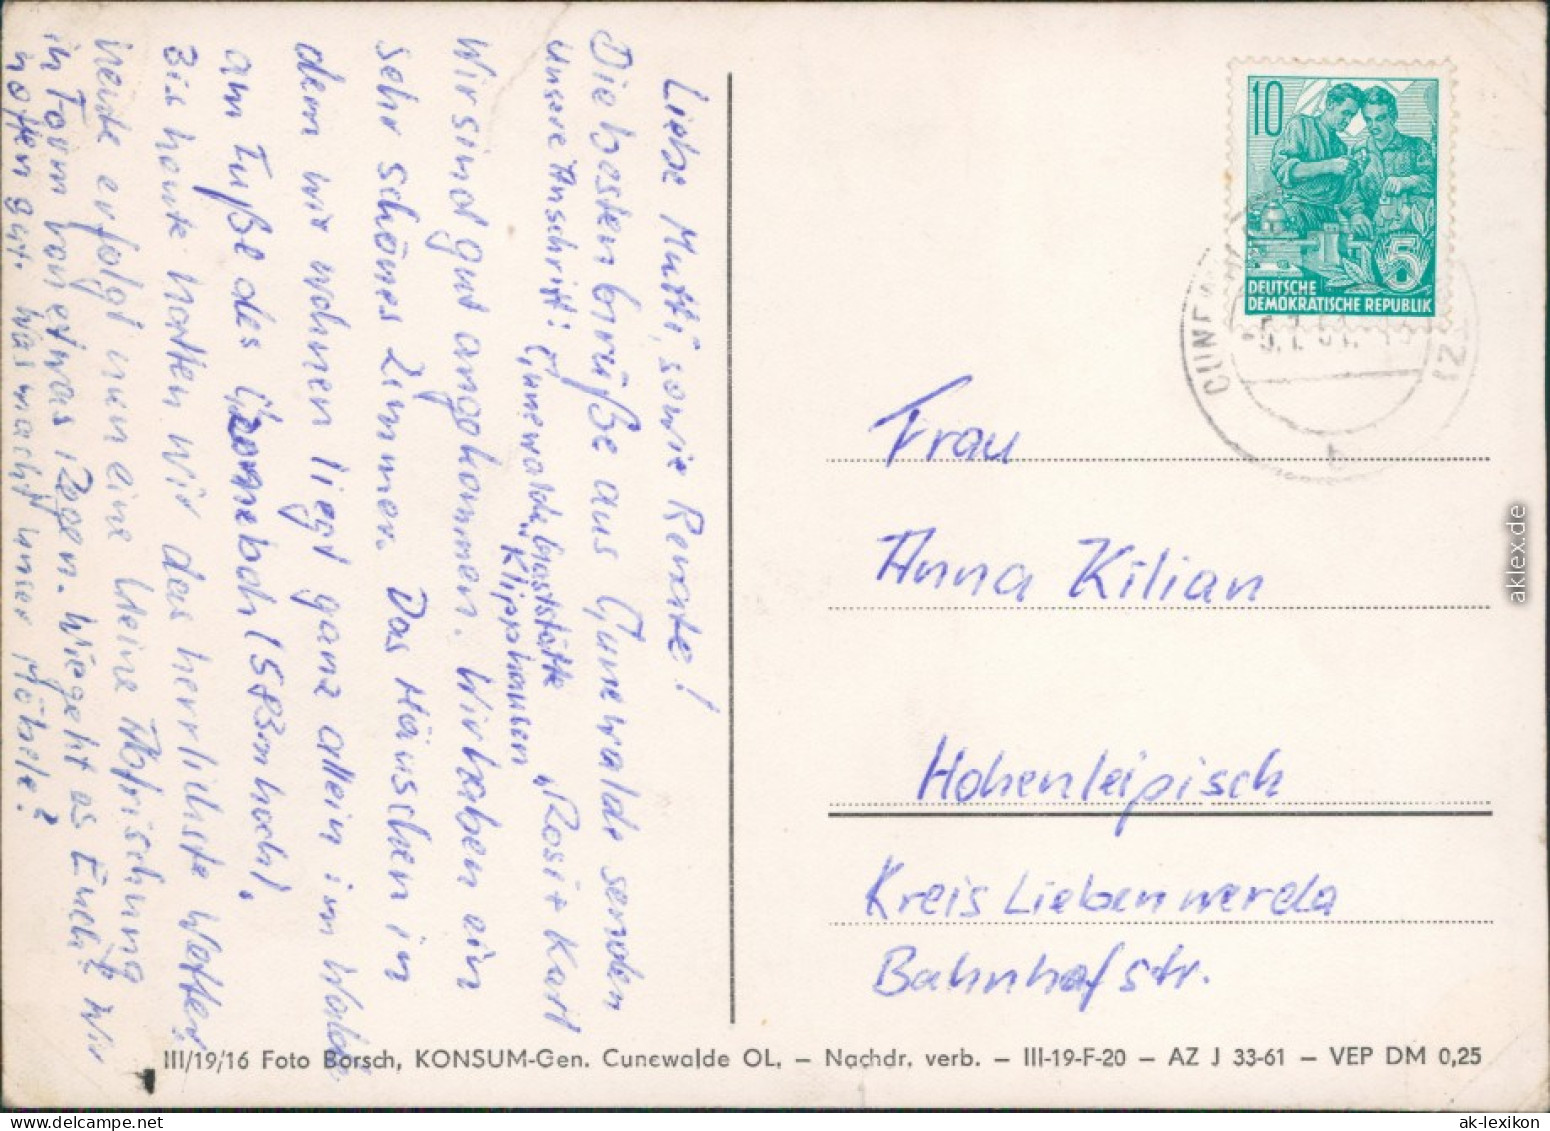 Liebe Mutti, sowie Renate!
Die besten Grüße aus Cunewalde senden
Rosi + Karl
unsere Anschrift: Cunewalde Gaststätte
„Klipphausen"
Wir sind gut angekommen. Wir haben ein
sehr schönes Zimmer. Das Häuschen in
dem wir wohnen liegt ganz allein im Walde
am Fuße des Czorneboh (583m hoch).
Bis heute hatten wir das herrlichste Wetter,
heute erfolgt nun eine kleine Abfrischung
in Form von etwas Regen. Wie geht es Euch? Wir
hoffen gut. Was macht unser Möbele?
10
5
DEUTSCHE
DEMOKRATISCHE REPUBLIK
CUNEW
-5.7.61.-18
(Z)
b
Frau
Anna Kilian
Hohenleipisch
Kreis Liebenwerda
Bahnhofstr.
III/19/16 Foto Borsch, KONSUM-Gen. Cunewalde OL, – Nachdr. verb. – III-19-F-20 – AZ J 33-61 – VEP DM 0,25
aklex.de
ak-lexikon